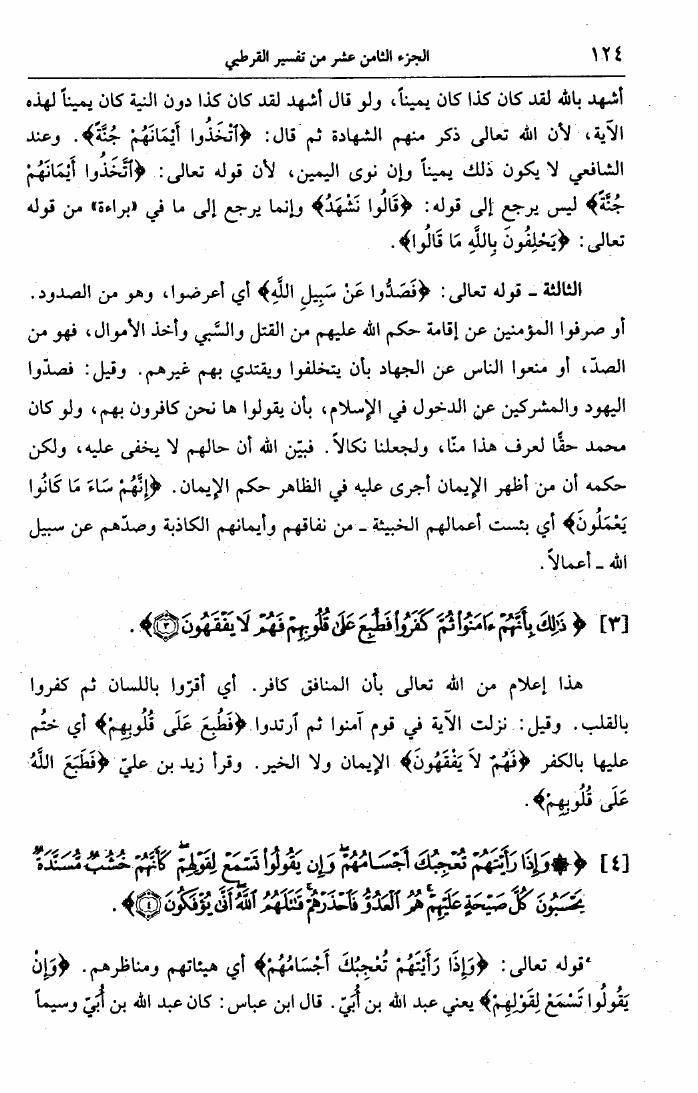 ١٢٤ الجزء الثامن عشر من تفسير القرطبي
أشهد بالله لقد كان كذا كان يميناً، ولو قال أشهد لقد كان كذا دون النية كان يميناً لهذه
الآية، لأن الله تعالى ذكر منهم الشهادة ثم قال: ﴿ٱتَّخَذُوا أَيْمَانَهُمْ جُنَّةً﴾. وعند
الشافعي لا يكون ذلك يميناً وإن نوى اليمين، لأن قوله تعالى: ﴿ٱتَّخَذُوا أَيْمَانَهُمْ
جُنَّةً﴾ ليس يرجع إلى قوله: ﴿قَالُوا نَشْهَدُ﴾ وإنما يرجع إلى ما في «براءة» من قوله
تعالى: ﴿يَحْلِفُونَ بِاللَّهِ مَا قَالُوا﴾.
الثالثة ـ قوله تعالى: ﴿فَصَدُّوا عَنْ سَبِيلِ اللَّهِ﴾ أي أعرضوا، وهو من الصدود.
أو صرفوا المؤمنين عن إقامة حكم الله عليهم من القتل والسَّبي وأخذ الأموال، فهو من
الصدّ، أو منعوا الناس عن الجهاد بأن يتخلفوا ويقتدي بهم غيرهم. وقيل: فصدّوا
اليهود والمشركين عن الدخول في الإسلام، بأن يقولوا ها نحن كافرون بهم، ولو كان
محمد حقًّا لعرف هذا منّا، ولجعلنا نكالاً. فبيّن الله أن حالهم لا يخفى عليه، ولكن
حكمه أن من أظهر الإيمان أجرى عليه في الظاهر حكم الإيمان. ﴿إِنَّهُمْ سَاءَ مَا كَانُوا
يَعْمَلُونَ﴾ أي بئست أعمالهم الخبيثة ـ من نفاقهم وأيمانهم الكاذبة وصدّهم عن سبيل
الله ـ أعمالاً.
[٣] ﴿ذَٰلِكَ بِأَنَّهُمْ ءَامَنُوا۟ ثُمَّ كَفَرُوا۟ فَطُبِعَ عَلَىٰ قُلُوبِهِمْ فَهُمْ لَا يَفْقَهُونَ ٣﴾.
هذا إعلام من الله تعالى بأن المنافق كافر. أي أقرّوا باللسان ثم كفروا
بالقلب. وقيل: نزلت الآية في قوم آمنوا ثم ٱرتدوا ﴿فَطُبِعَ عَلَى قُلُوبِهِمْ﴾ أي ختُم
عليها بالكفر ﴿فَهُمْ لاَ يَفْقَهُونَ﴾ الإيمان ولا الخير. وقرأ زيد بن عليّ ﴿فَطَبَعَ اللَّهُ
عَلَى قُلُوبِهِمْ﴾.
[٤] ﴿۞ وَإِذَا رَأَيْتَهُمْ تُعْجِبُكَ أَجْسَامُهُمْ ۖ وَإِن يَقُولُوا۟ تَسْمَعْ لِقَوْلِهِمْ ۖ كَأَنَّهُمْ خُشُبٌ مُّسَنَّدَةٌ ۖ
يَحْسَبُونَ كُلَّ صَيْحَةٍ عَلَيْهِمْ ۚ هُمُ الْعَدُوُّ فَاحْذَرْهُمْ ۚ قَاتَلَهُمُ اللَّهُ ۖ أَنَّىٰ يُؤْفَكُونَ ٤﴾.
قوله تعالى: ﴿وَإِذَا رَأَيْتَهُمْ تُعْجِبُكَ أَجْسَامُهُمْ﴾ أي هيئاتهم ومناظرهم. ﴿وَإِنْ
يَقُولُوا تَسْمَعْ لِقَوْلِهِمْ﴾ يعني عبد الله بن أُبَيّ. قال ابن عباس: كان عبد الله بن أُبَيّ وسيماً